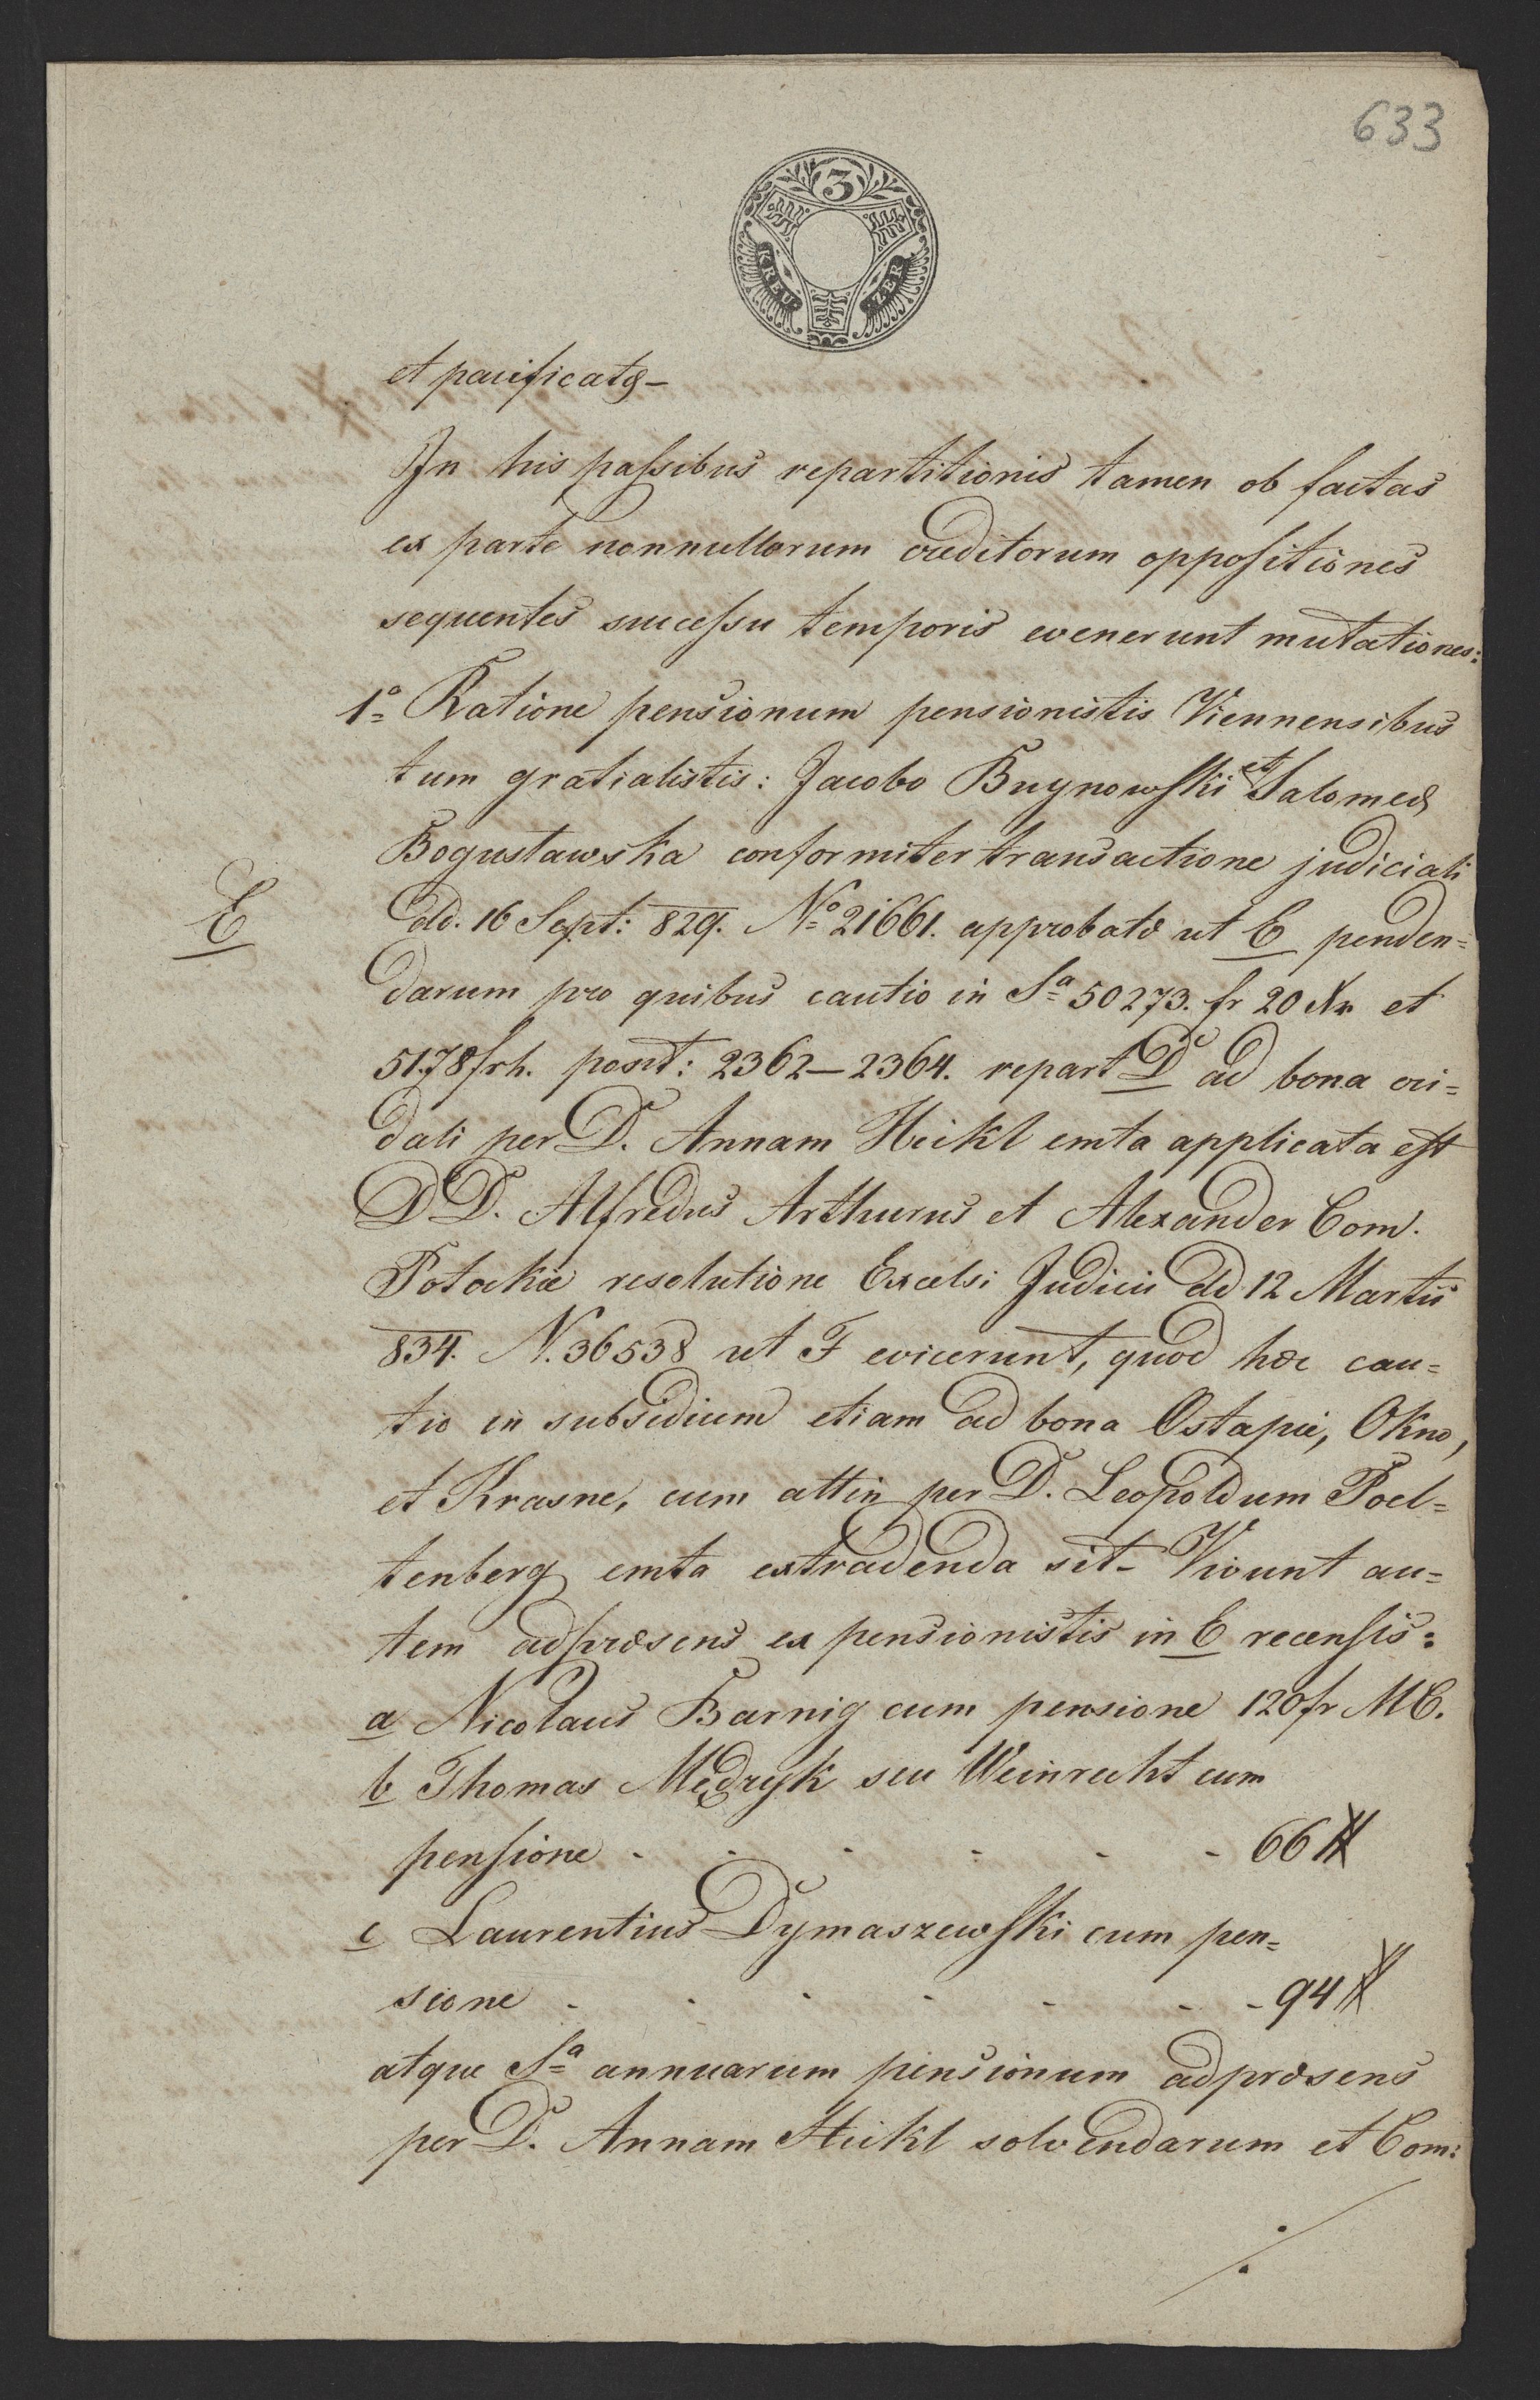 633
3
KREU ZER
et pacificatæ –
In his passibus repartitionis tamen ob factas
ex parte nonnullorum creditorum oppositiones
sequentes successu temporis evenerunt mutationes:
1º Ratione pensionum pensionistis Viennensibus
tum gratialistis: Jacobo Buynowski et Salomeæ
Bogusławska conformiter transactione judiciali
E
dd. 16 Sept: 829. Nº 21661. approbatæ ut E penden=
darum pro quibus cautio in Sª 50273. fr 20 Xr et
5178 frh. posit: 2362–2364. repart D ad bona cri=
dali per D. Annam Heikl emta applicata est
DD. Alfredus Arthurus et Alexander Com.
Potockie resolutione Excelsi Judicii dd 12 Martii
834. N. 36538 ut F evicerunt, quod hæc cau=
tio in subsidium etiam ad bona Ostapie, Okno,
et Krasne, cum attin per D. Leopoldum Poel=
tenberg emta extradenda sit – Vivunt au=
tem adpræsens ex pensionistis in E recensis:
a Nicolaus Barnig cum pensione 120 fr MC.
b Thomas Mędryk seu Weinrecht cum
pensione - - - - - - 66 #
c Laurentius Dymaszewski cum pen=
sione - - - - - - - 94 #
atque Sª annuarum pensionum adpræsens
per D. Annam Heikl solvendarum et Com:
./.